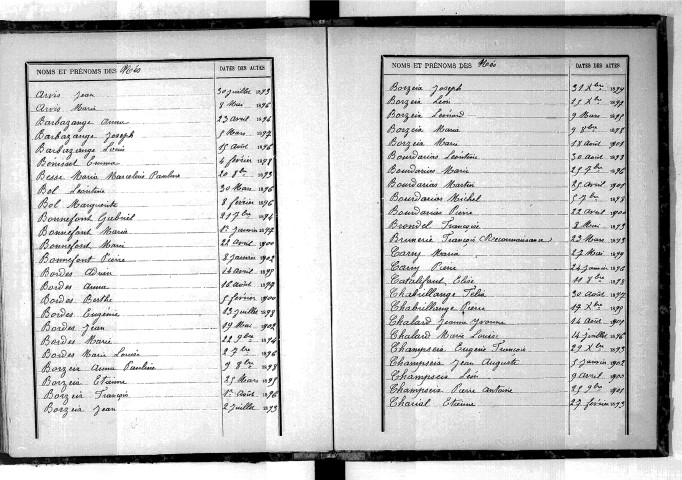 NOMS ET PRÉNOMS DES Nés DATES DES ACTES
Arvis Jean 30 juillet 1893
Arvis Marie 8 Mai 1896
Barbazange Anna 23 avril 1896
Barbazange Joseph 5 Mars 1897
Barbazange Louis 15 août 1896
Bénisset Emma 4 février 1898
Besse Maria Marcelin Pauline 20 8bre 1893
Bol Léontine 30 Mars 1896
Bol Marguerite 8 février 1896
Bonnefont Gabriel 21 7bre 1894
Bonnefont Maria 1er janvier 1897
Bonnefont Marie 22 avril 1900
Bonnefont Pierre 8 janvier 1902
Bordes Adrien 14 avril 1895
Bordes Anna 16 août 1899
Bordes Berthe 5 février 1900
Bordes Eugénie 13 juillet 1898
Bordes Jean 19 Mai 1902
Bordes Marie 22 9bre 1894
Bordes Marie Louise 2 7bre 1896
Borzeix Anna Pauline 9 8bre 1898
Borzeix Etienne 25 Mars 1895
Borzeix François 1er août 1896
Borzeix Jean 2 juillet 1893
NOMS ET PRÉNOMS DES Nés DATES DES ACTES
Borzeix Joseph 31 Xbre 1894
Borzeix Léon 15 Xbre 1892
Borzeix Léonard 9 Mars 1895
Borzeix Maria 9 8bre 1898
Borzeix Marie 18 août 1901
Bourdarias Léontine 30 août 1893
Bourdarias Marie 25 7bre 1896
Bourdarias Martin 25 avril 1901
Bourdarias Michel 5 7bre 1898
Bourdarias Pierre 22 avril 1900
Brendel Françoise 8 Mai 1893
Brunerie François (Reconnaissance) 23 Mars 1893
Carry Maria 27 Mai 1899
Carry Pierre 24 janvier 1896
Catalifaut Elise 11 8bre 1898
Chabrillange Félix 30 août 1897
Chabrillange Pierre 19 Xbre 1899
Chalard Jeanne Yvonne 14 août 1901
Chalard Marie Louise 14 juillet 1896
Champseix Eugène François 29 Xbre 1893
Champseix Jean Auguste 5 janvier 1902
Champseix Léon 9 avril 1900
Champseix Pierre Antoine 25 9bre 1901
Charial Etienne 27 février 1893